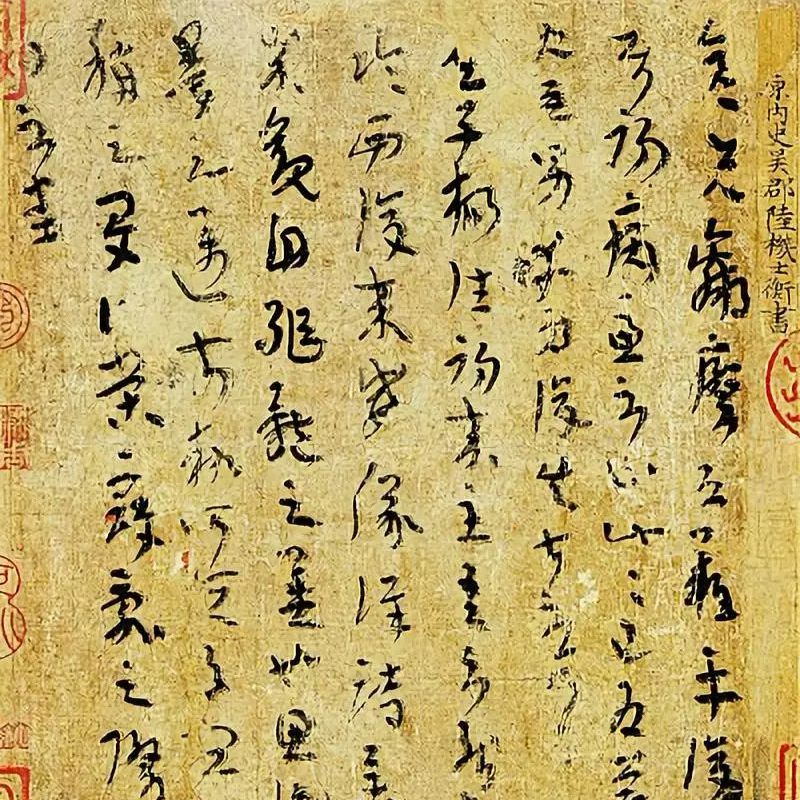 晉內史吳郡陸機士衡書
彥先羸瘵恐難平復
屬初病慮不止此此已為慶
使唯男幸為復失前憂耳
吳子楊往初來主吾不能盡
臨西復來威儀詳跱舉
成觀自軀體之美也思識
量之邁前執所恒有宜
稱之夏伯榮寇亂之際
問不悉